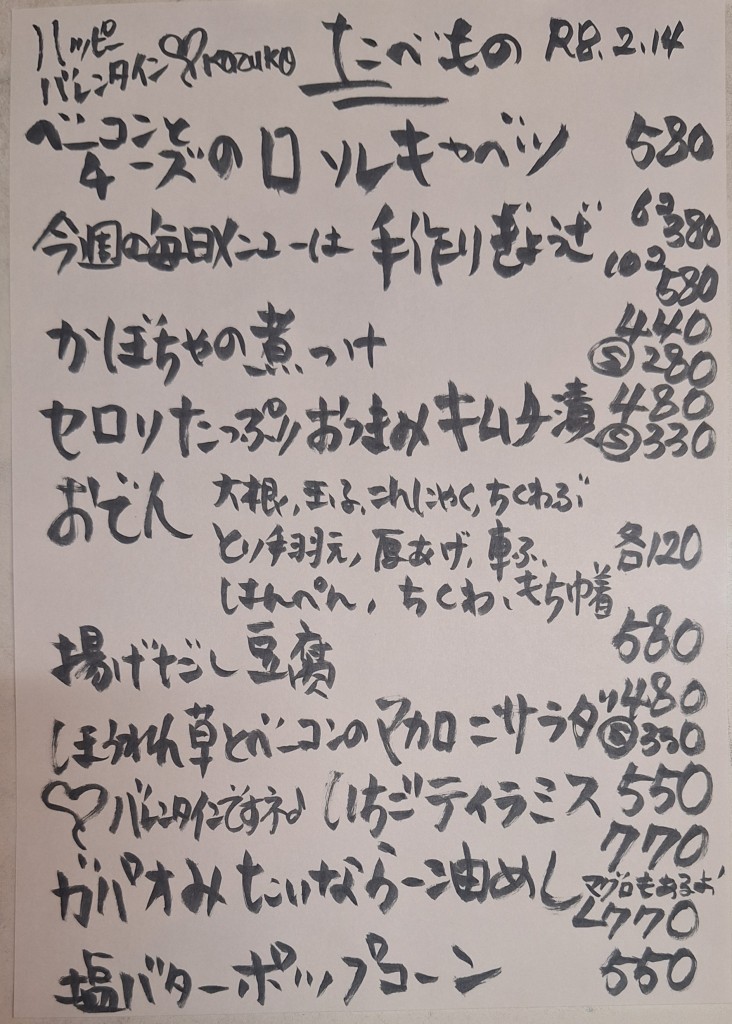 ハッピー
バレンタイン♡KAZUKO
たべもの R8.2.14
ベーコンとチーズのロールキャベツ 580
今週の毎日メニューは 手作りぎょうざ 6コ380
10コ580
かぼちゃの煮つけ 440
Ⓢ280
セロリたっぷりおつまみキムチ漬 480
Ⓢ330
おでん 大根、玉子、こんにゃく、ちくわぶ
とり手羽元、厚あげ、車ふ、 各120
はんぺん、ちくわ、もち巾着
揚げだし豆腐 580
ほうれん草とベーコンのマカロニサラダ 480
Ⓢ330
♡バレンタインですネ♪ いちごティラミス 550
ガパオみたいならー油めし 770
マグロもあるよ!
770
塩バターポップコーン 550